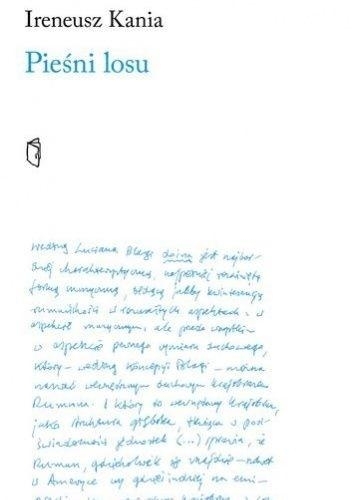 Ireneusz Kania
Pieśni losu
według Luciana Blagi doina jest najbar-
dziej charakterystyczną, najpełniej rozwiniętą
formą muzyczną, będącą jakby kwintesencją
rumuńskości w rozmaitych aspektach: w
aspekcie muzycznym, ale przede wszystkim
w aspekcie pewnego wymiaru duchowego,
który – według koncepcji Blagi – można
nazwać wewnętrznym duchowym krajobrazem
Rumuna. I który to wewnętrzny krajobraz,
jako struktura głęboka, tkwiąca w pod-
świadomości jednostek (...) sprawia, że
Rumun, gdziekolwiek się znajdzie – nawet
w Ameryce czy gdzieś indziej na emi-